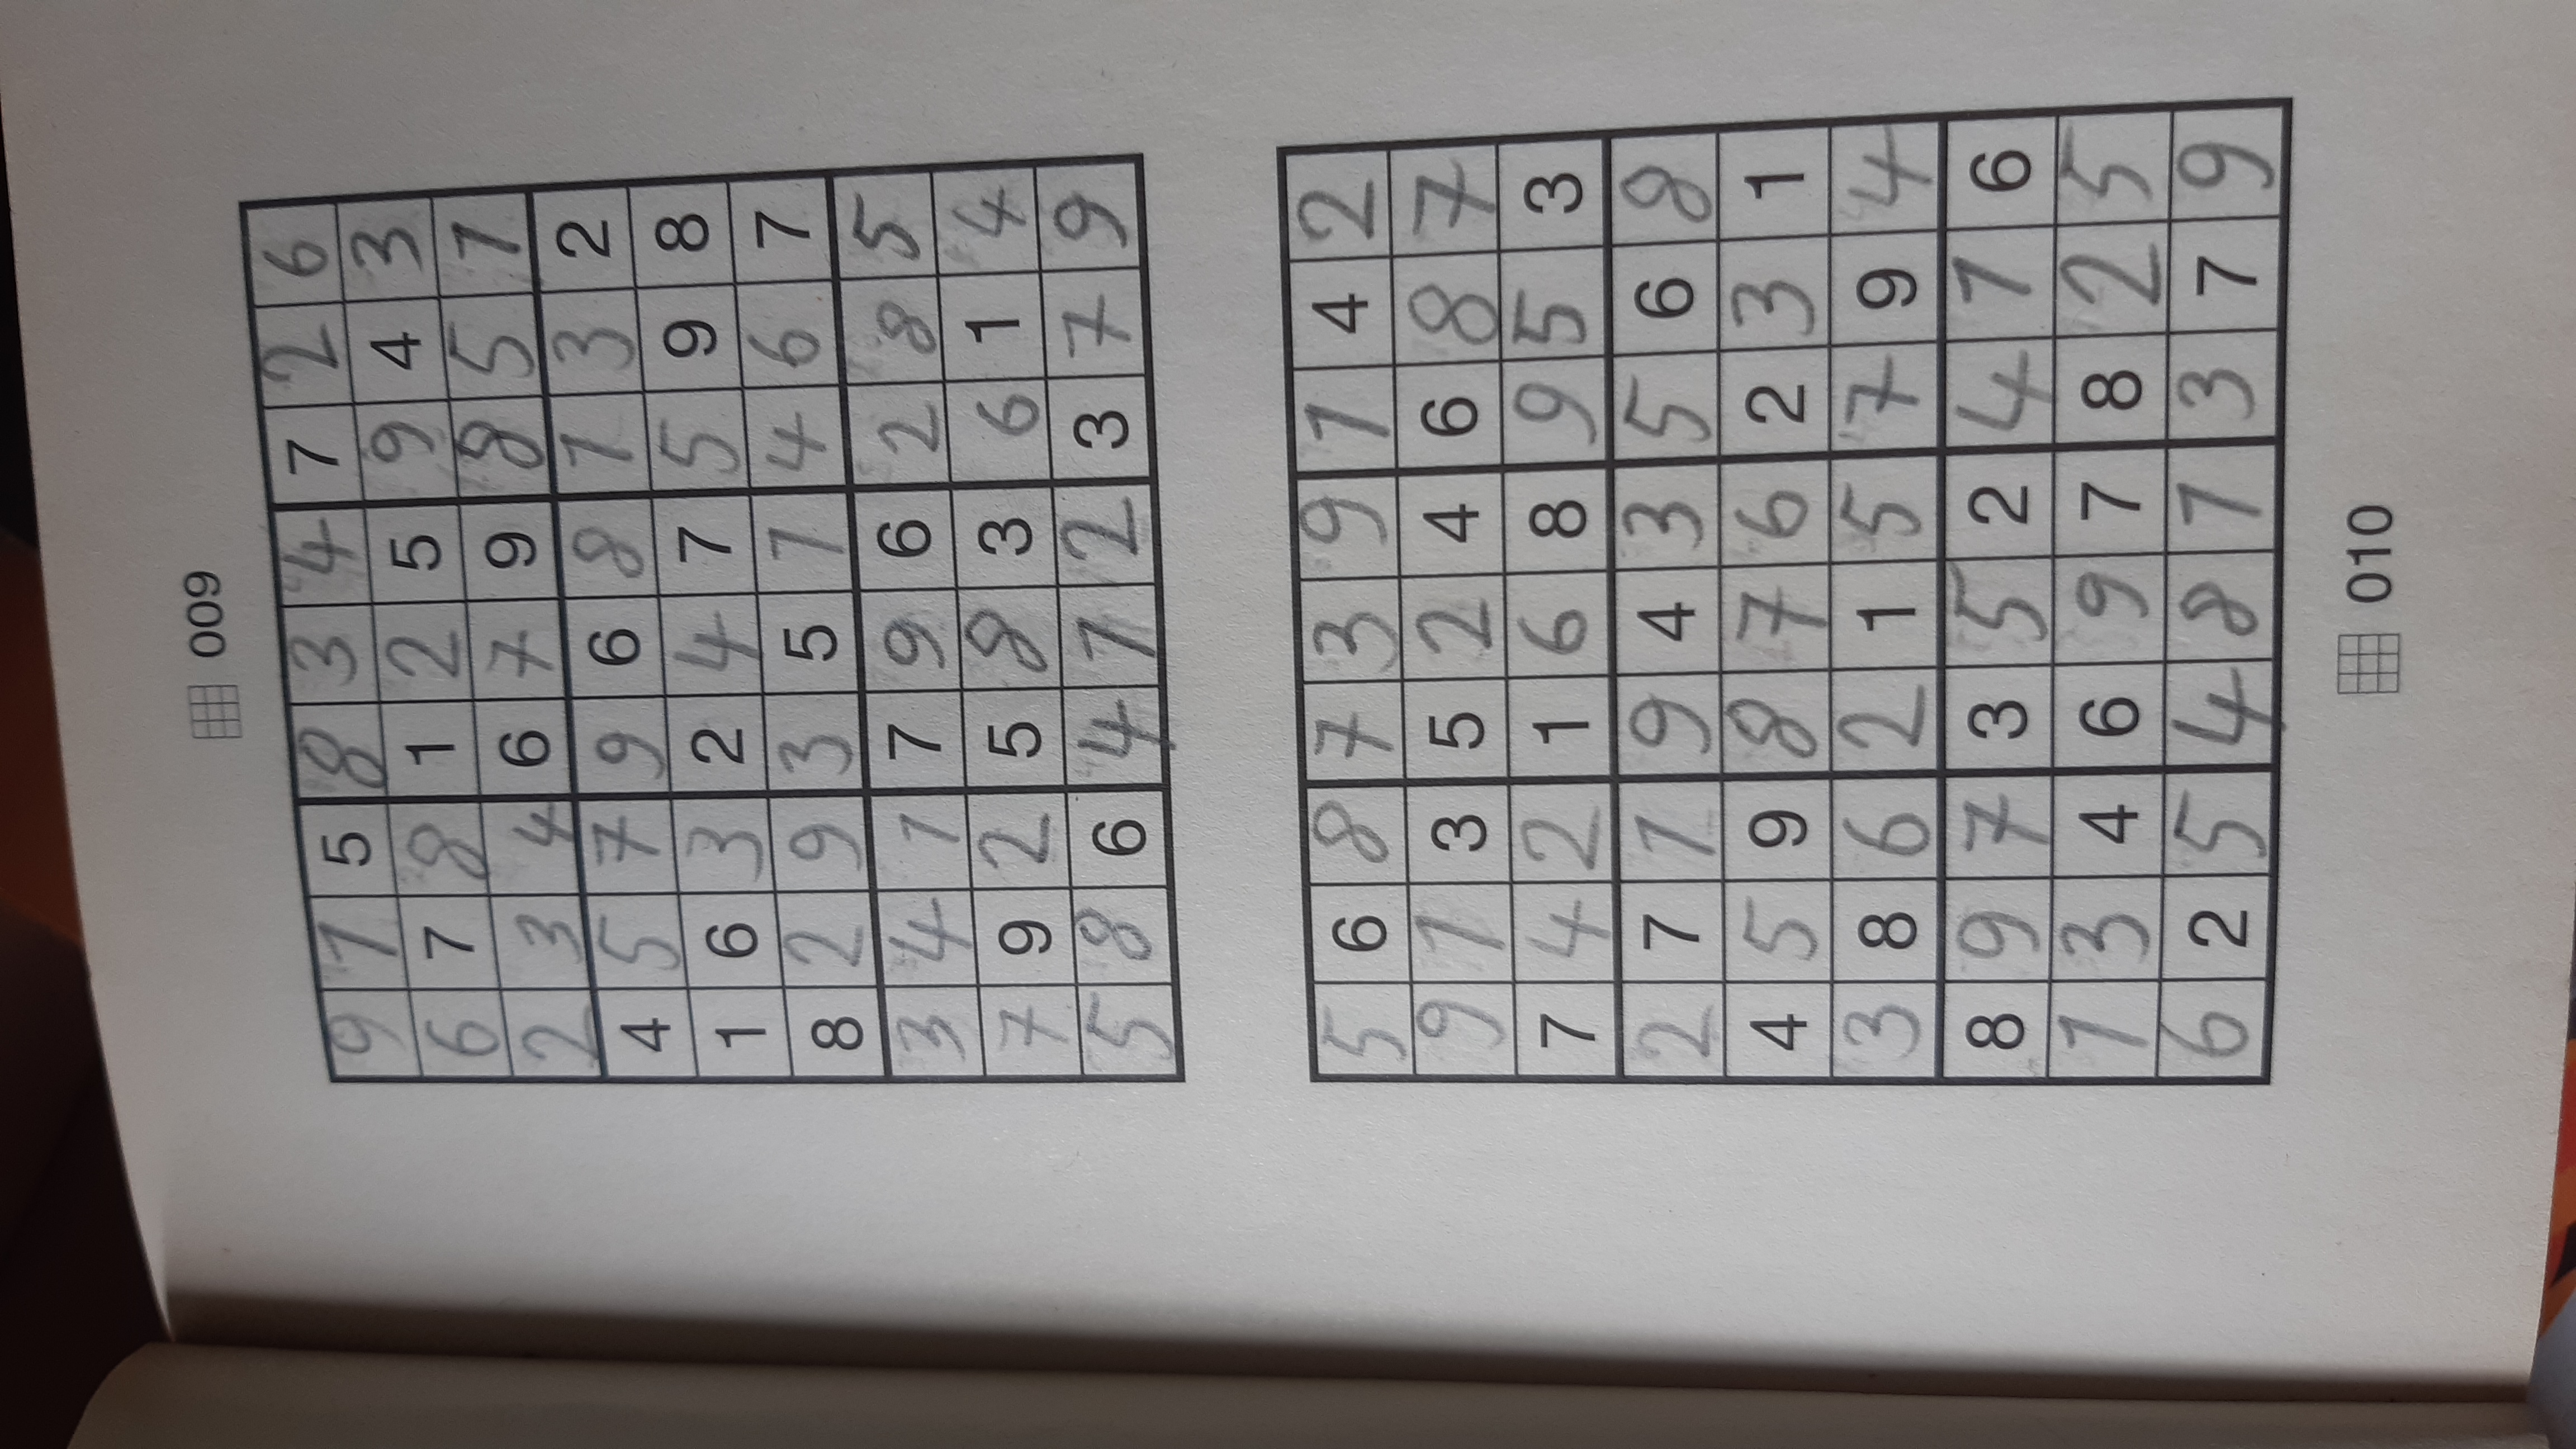 009
9 1 5 8 3 4 7 2 6
6 7 8 1 2 5 9 4 3
2 3 4 6 7 9 8 5 1
4 5 7 9 6 8 1 3 2
1 6 3 2 4 7 5 9 8
8 2 9 3 5 1 4 6 7
3 4 1 7 9 6 2 8 5
7 9 2 5 8 3 6 1 4
5 8 6 4 1 2 3 7 9
5 6 8 7 3 9 1 4 2
9 1 3 5 2 4 6 8 7
7 4 2 1 6 8 9 5 3
2 7 1 9 4 3 5 6 8
4 5 9 8 7 6 2 3 1
3 8 6 2 1 5 7 9 4
8 9 7 3 5 2 4 1 6
1 3 4 6 9 7 8 2 5
6 2 5 4 8 1 3 7 9
010